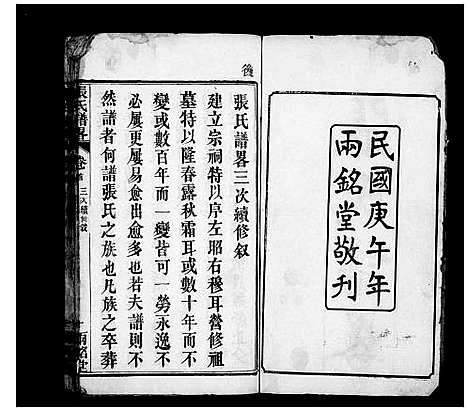 民國庚午年
兩銘堂敬刊
後
張氏譜畧三次續修叙
建立宗祠特以序左昭右穆耳營修祖
墓特以隆春露秋霜耳或數十年而不
變或數百年而一變皆可一勞永逸不
必屢更屢易愈出愈多也若夫譜則不
然譜者何譜張氏之族也凡族之卒葬
張氏譜畧
卷首
三次續修叙
兩銘堂